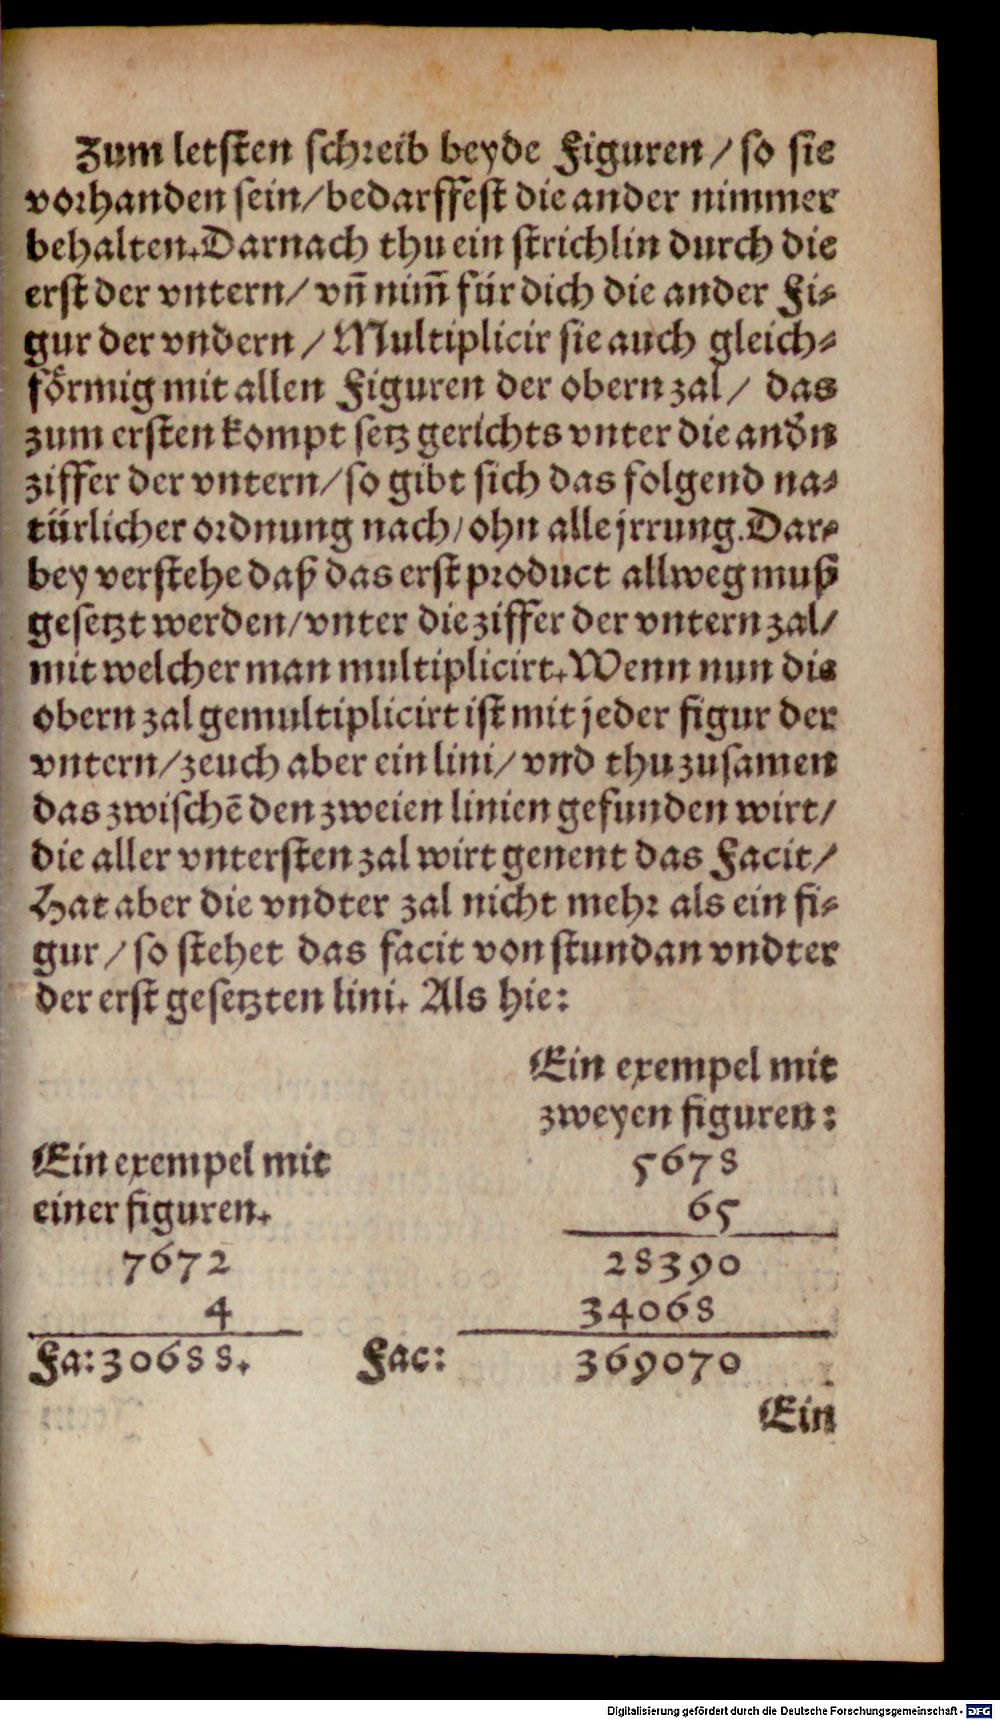 Zum letsten schreib beyde Figuren / so sie
vorhanden sein/ bedarffest die ander nimmer
behalten. Darnach thu ein strichlin durch die
erst der vntern/ vn̄ nim̄ für dich die ander Fi-
gur der vndern / Multiplicir sie auch gleich-
förmig mit allen Figuren der obern zal/ das
zum ersten kompt setz gerichts vnter die andn̄
ziffer der vntern/ so gibt sich das folgend na-
türlicher ordnung nach/ ohn alle jrrung. Dar-
bey verstehe daß das erst product allweg muß
gesetzt werden/ vnter die ziffer der vntern zal/
mit welcher man multiplicirt. Wenn nun die
obern zal gemultiplicirt ist mit jeder figur der
vntern/ zeuch aber ein lini/ vnd thu zusamen
das zwischē den zweien linien gefunden wirt/
die aller vntersten zal wirt genent das Facit/
Hat aber die vndter zal nicht mehr als ein fi-
gur / so stehet das facit von stundan vndter
der erst gesetzten lini. Als hie:
Ein exempel mit
einer figuren.
7672
4
Fa: 30688.
Ein exempel mit
zweyen figuren:
5678
65
28390
34068
Fac: 369070
Ein
Digitalisierung gefördert durch die Deutsche Forschungsgemeinschaft - DFG